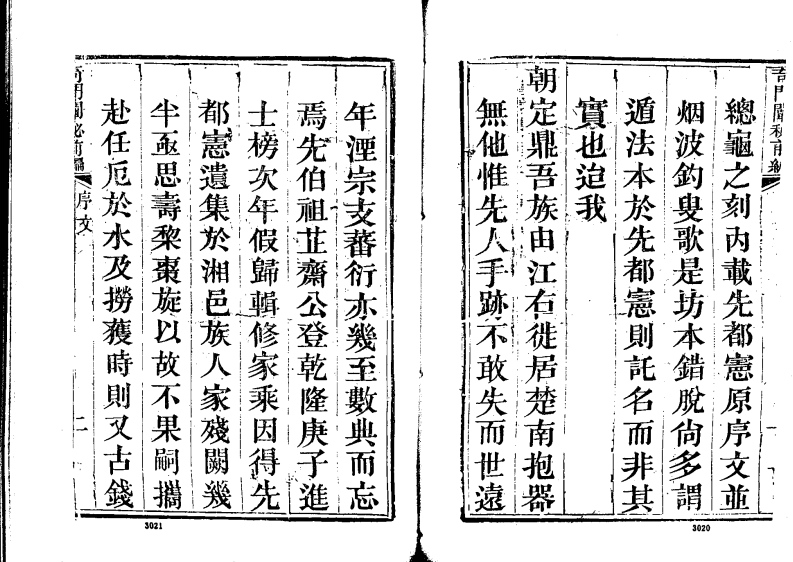 奇門闡秘前編
總龜之刻內載先都憲原序文並
烟波釣叟歌是坊本錯脫尙多謂
遁法本於先都憲則託名而非其
實也迨我
朝定鼎吾族由江右徙居楚南抱器
無他惟先人手跡不敢失而世遠
3020
年湮宗支蕃衍亦幾至數典而忘
焉先伯祖芷齋公登乾隆庚子進
士榜次年假歸輯修家乘因得先
都憲遺集於湘邑族人家殘闕幾
半亟思壽黎棗旋以故不果嗣攜
赴任厄於水及撈獲時則又古錢
奇門闡秘前編 序文 二
3021